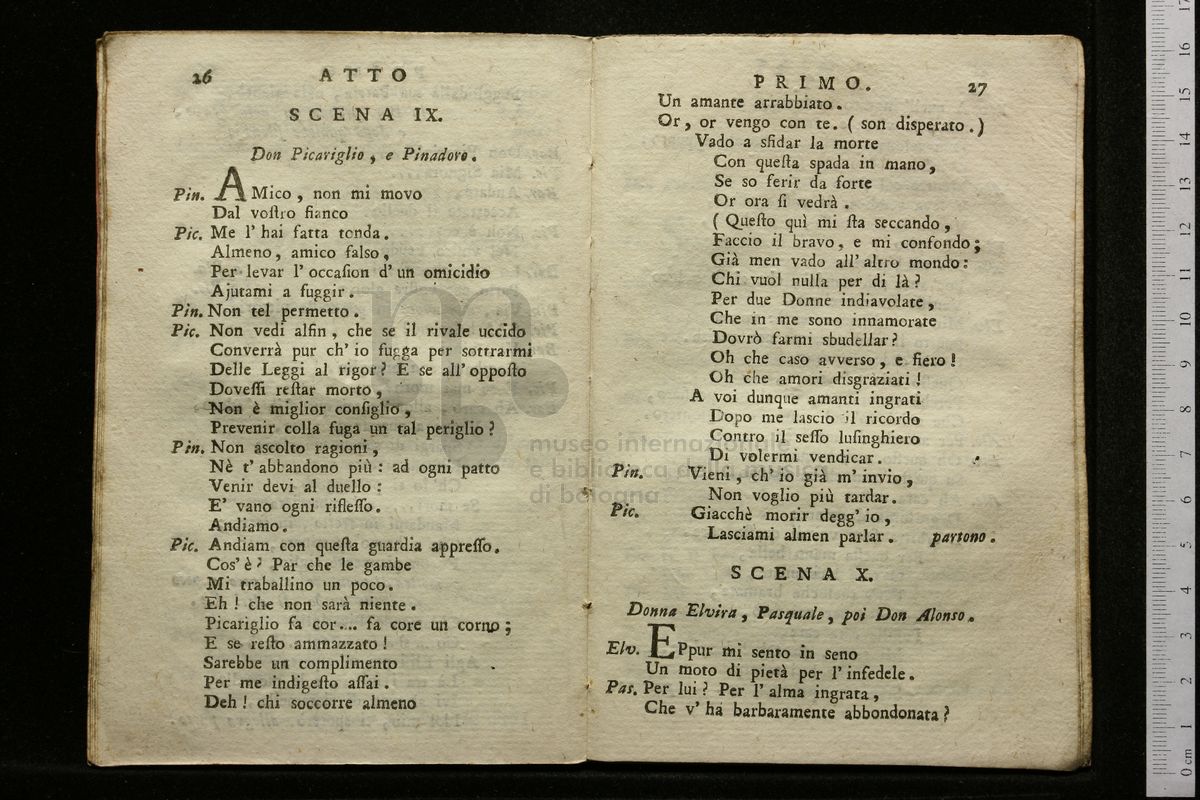 26 ATTO
SCENA IX.
Don Picariglio, e Pinadoro.
Pin. AMico, non mi movo
Dal vostro fianco
Pic. Me l'hai fatta tonda.
Almeno, amico falso,
Per levar l'occasion d'un omicidio
Ajutami a fuggir.
Pin. Non tel permetto.
Pic. Non vedi alfin, che se il rivale uccido
Converrà pur ch'io fugga per sottrarmi
Delle Leggi al rigor? E se all'opposto
Dovessi restar morto,
Non è miglior consiglio,
Prevenir colla fuga un tal periglio?
Pin. Non ascolto ragioni,
Nè t'abbandono più: ad ogni patto
Venir devi al duello:
E' vano ogni riflesso.
Andiamo.
Pic. Andiam con questa guardia appresso.
Cos'è? Par che le gambe
Mi traballino un poco.
Eh! che non sarà niente.
Picariglio fa cor.... fa core un corno;
E se resto ammazzato!
Sarebbe un complimento
Per me indigesto assai.
Deh! chi soccorre almeno
PRIMO. 27
Un amante arrabbiato.
Or, or vengo con te. (son disperato.)
Vado a sfidar la morte
Con questa spada in mano,
Se so ferir da forte
Or ora si vedrà.
(Questo quì mi sta seccando,
Faccio il bravo, e mi confondo;
Già men vado all'altro mondo:
Chi vuol nulla per di là?
Per due Donne indiavolate,
Che in me sono innamorate
Dovrò farmi sbudellar?
Oh che caso avverso, e fiero!
Oh che amori disgraziati!
A voi dunque amanti ingrati
Dopo me lascio il ricordo
Contro il sesso lusinghiero
Di volermi vendicar.
Pin. Vieni, ch'io già m'invio,
Non voglio più tardar.
Pic. Giacchè morir degg'io,
Lasciami almen parlar. partono.
SCENA X.
Donna Elvira, Pasquale, poi Don Alonso.
Elv. EPpur mi sento in seno
Un moto di pietà per l'infedele.
Pas. Per lui? Per l'alma ingrata,
Che v'ha barbaramente abbondonata?
museo internazionale
e biblioteca della musica
di bologna
0 cm 1 2 3 4 5 6 7 8 9 10 11 12 13 14 15 16 17